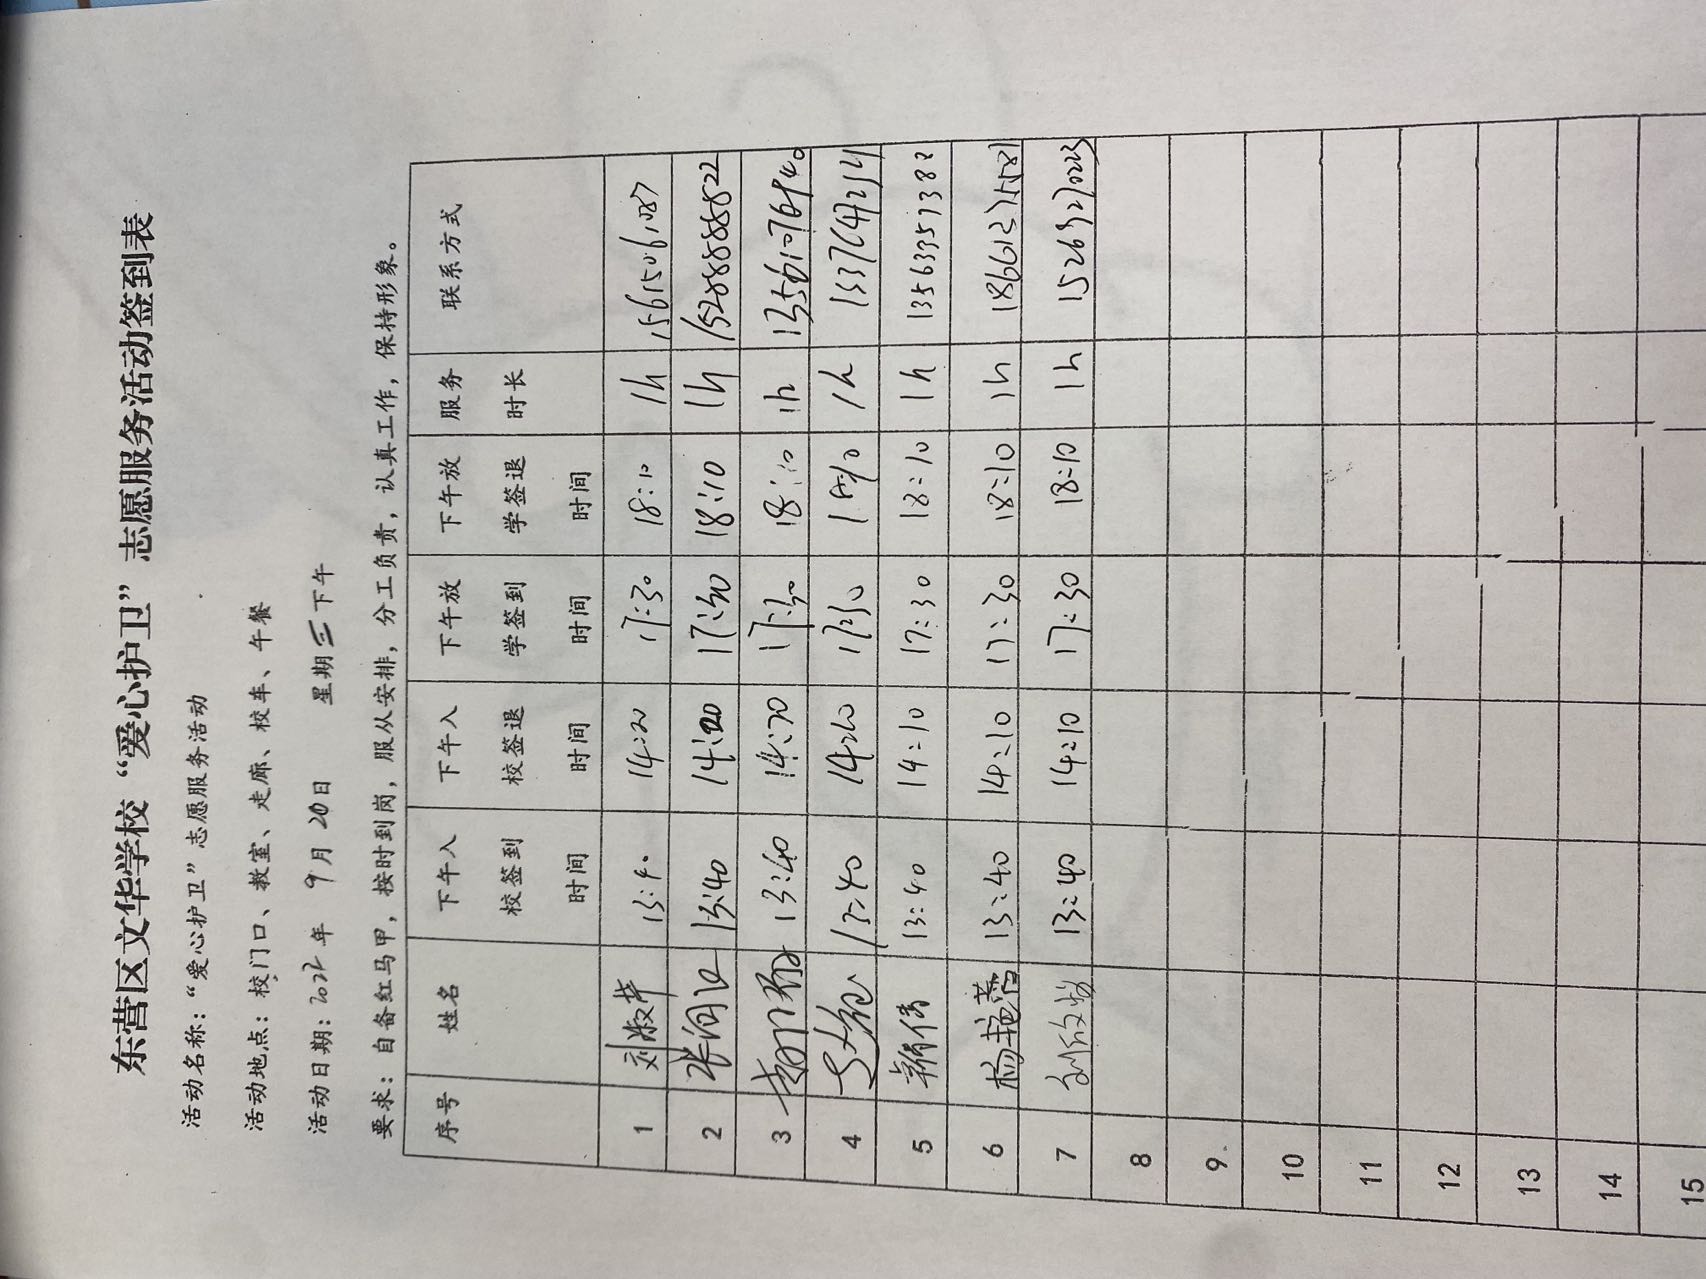 东营区文华学校“爱心护卫”志愿服务活动签到表
活动名称：“爱心护卫”志愿服务活动
活动地点：校门口、教室、走廊、校车、午餐
活动日期：2022年 9月20日 星期三下午
要求：自备红马甲，按时到岗，服从安排，分工负责，认真工作，保持形象。
序号 姓名 下午入校签到时间 下午入校签退时间 下午放学签到时间 下午放学签退时间 服务时长 联系方式
1 刘淑华 13:40 14:20 17:30 18:10 1h
2 13:40 14:20 17:30 18:10 1h 15288888822
3 13:40 14:20 17:30 18:10 1h
4 14:20 17:30 1h
5 13:40 14:10 17:30 18:10 1h
6 杨艳蕾 13:40 14:10 17:30 18:10 1h
7 13:40 14:10 17:30 18:10 1h
8
9
10
11
12
13
14
15